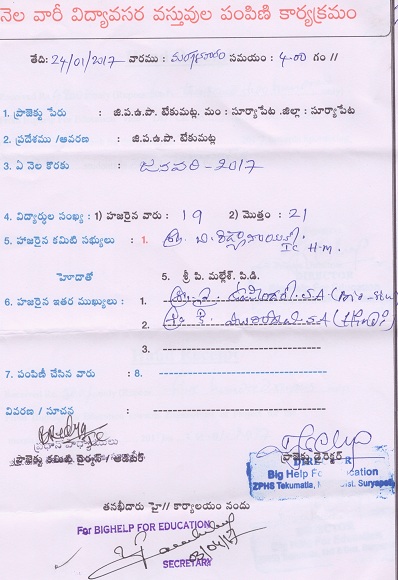 నెల వారీ విద్యావసర వస్తువుల పంపిణి కార్యక్రమం
తేది: 24/01/2017 వారము : మంగళవారం సమయం : 4.00 గం //
1. ప్రాజెక్టు పేరు : జి.ప.ఉ.పా. టేకుమట్ల. మం : సూర్యాపేట .జిల్లా : సూర్యాపేట
2. ప్రదేశము /ఆవరణ : జి.ప.ఉ.పా. టేకుమట్ల
3. ఏ నెల కొరకు : జనవరి - 2017
4. విద్యార్థుల సంఖ్య : 1) హాజరైన వారు : 19 2) మొత్తం : 21
5. హాజరైన కమిటి సభ్యులు : 1. శ్రీ. బి.
IC H.M.
హెూదాతో 5. శ్రీ పి. మల్లేశ్. పి.డి.
6. హజరైన ఇతర ముఖ్యులు : 1. S.A (Bio-
2. S.A (Hindi)
3.
7. పంపిణీ చేసిన వారు : 8.
వివరణ / సూచన :
BReddy
IC
ప్రాజెక్టు కమిటీ చైర్మన్ / ఆడిటర్
ప్రాజెక్టు డైరెక్టర్
Big Help For Education
ZPHS Tekumatla, Dist. Suryapet
తనఖీదారు హై// కార్యాలయం నందు
For BIGHELP FOR EDUCATION
03/04/17
SECRETARY